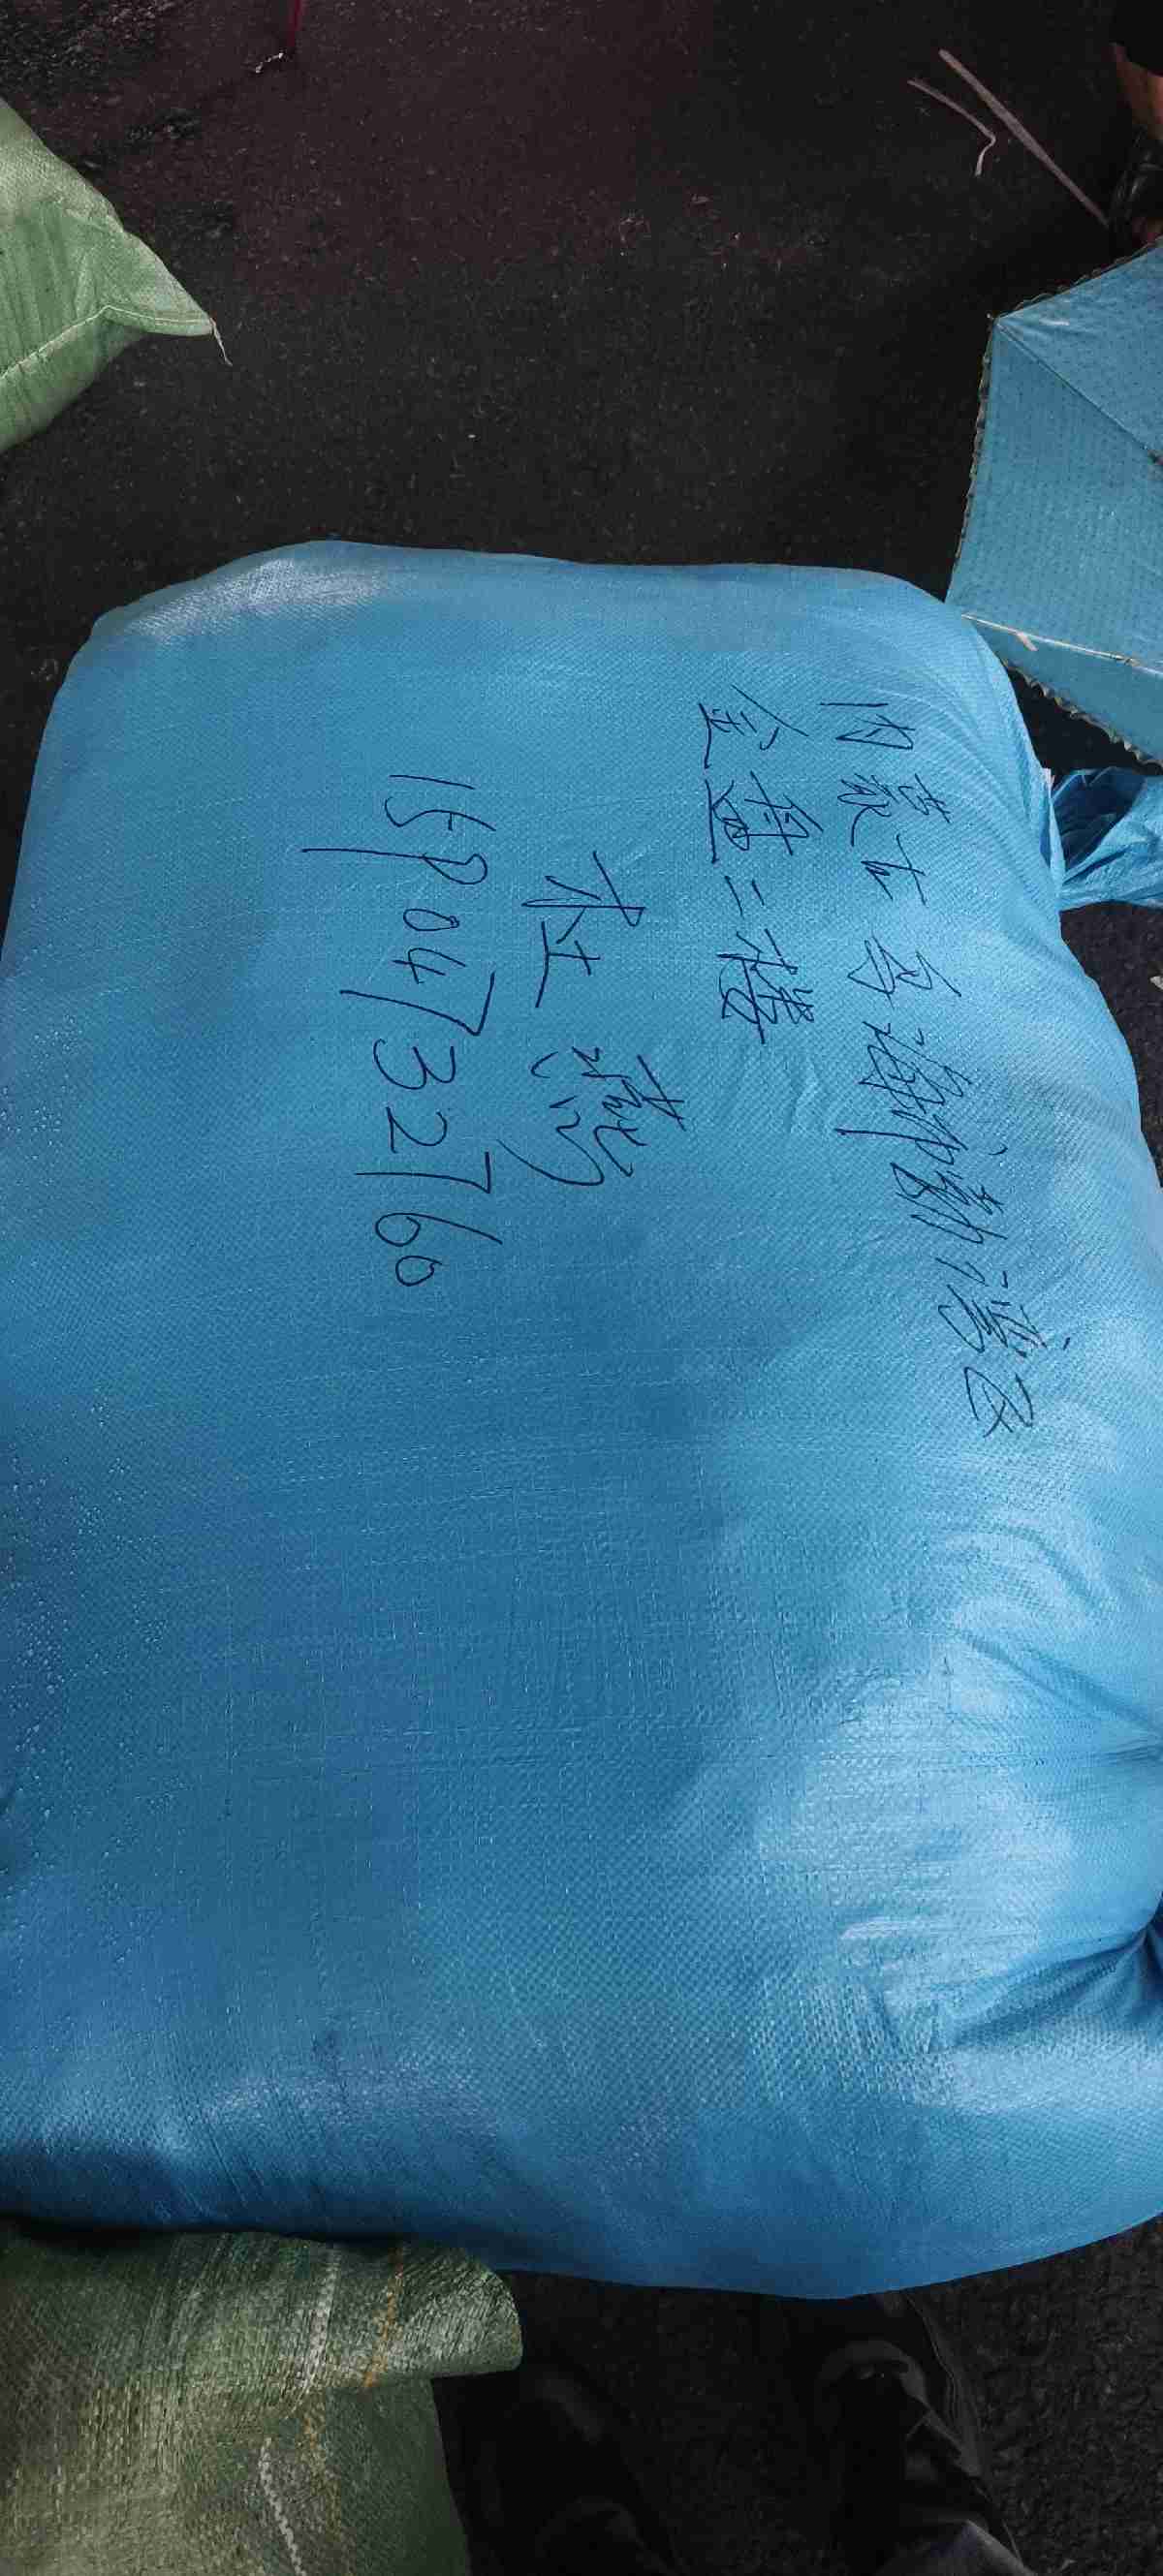 内蒙古乌海市海勃湾区
金盘二楼
杜燕
15904732760